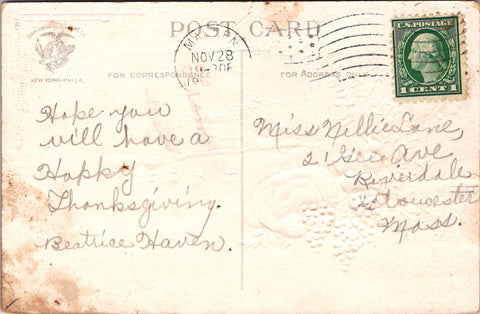 POST CARD
NEW YORK-PHILA.
FOR CORRESPONDENCE
FOR ADDRESS ONLY
NOV 28
U.S. POSTAGE
1 CENT 1
Hope you
will have a
Happy
Thanksgiving.
Beatrice Haven.
Miss Nellie Lane,
21 Gee Ave
Riverdale
Gloucester
Mass.